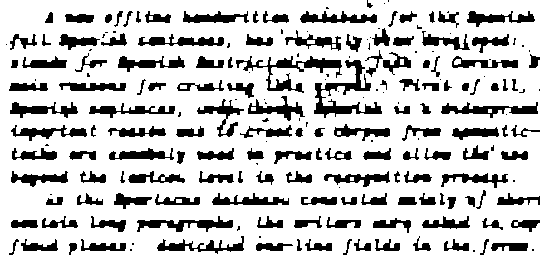 A new offline handwritten database for the Spanish
full Spanish sentences, has recently been developed:
stands for Spanish Restricted-domain Task of Cursive
main reasons for creating this corpus. First of all,
Spanish sentences, even though Spanish is a widespread
important reason was to create a corpus from semantic-
tasks are commonly used in practice and allow the use
beyond the lexicon level in the recognition process.
As the Spartacus database consisted mainly of short
contain long paragraphs, the writers were asked to copy
fixed places: dedicated one-line fields in the forms.